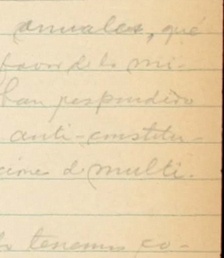 anuales, qué
favor de la mi-
han respondido
anti-constitu-
ciones de multi-
tenemos co-